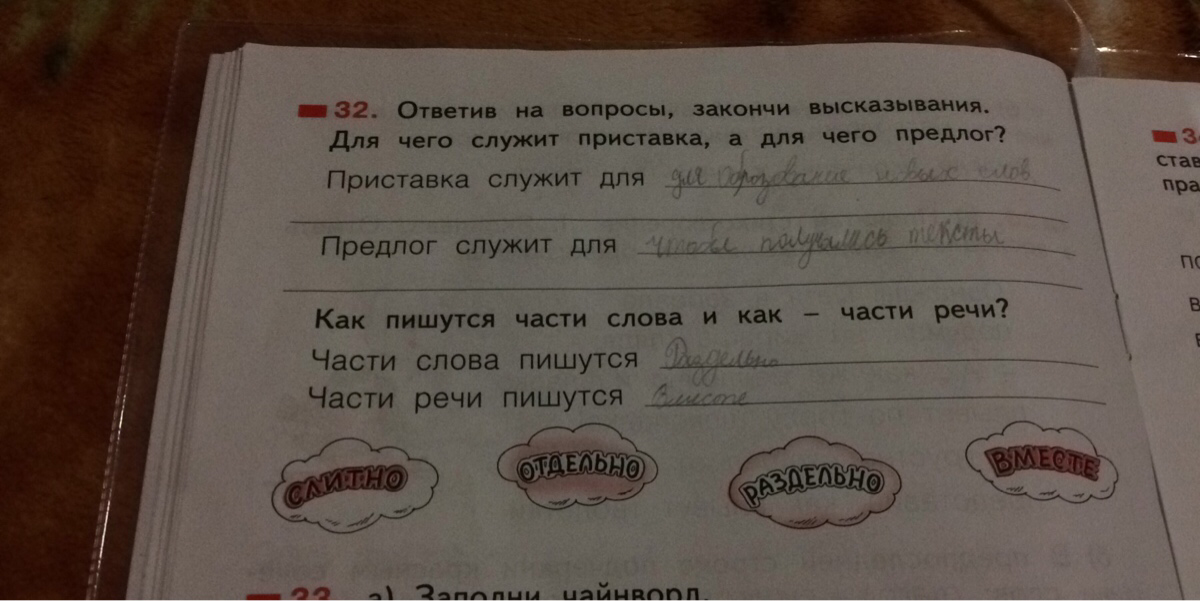 32. Ответив на вопросы, закончи высказывания.
Для чего служит приставка, а для чего предлог?
Приставка служит для для образование новых слов
Предлог служит для чтобы получились тексты
Как пишутся части слова и как – части речи?
Части слова пишутся Раздельно
Части речи пишутся Вместе
СЛИТНО ОТДЕЛЬНО РАЗДЕЛЬНО ВМЕСТЕ
33. а) Заполни чайнворд.
3
став
пра
по
в